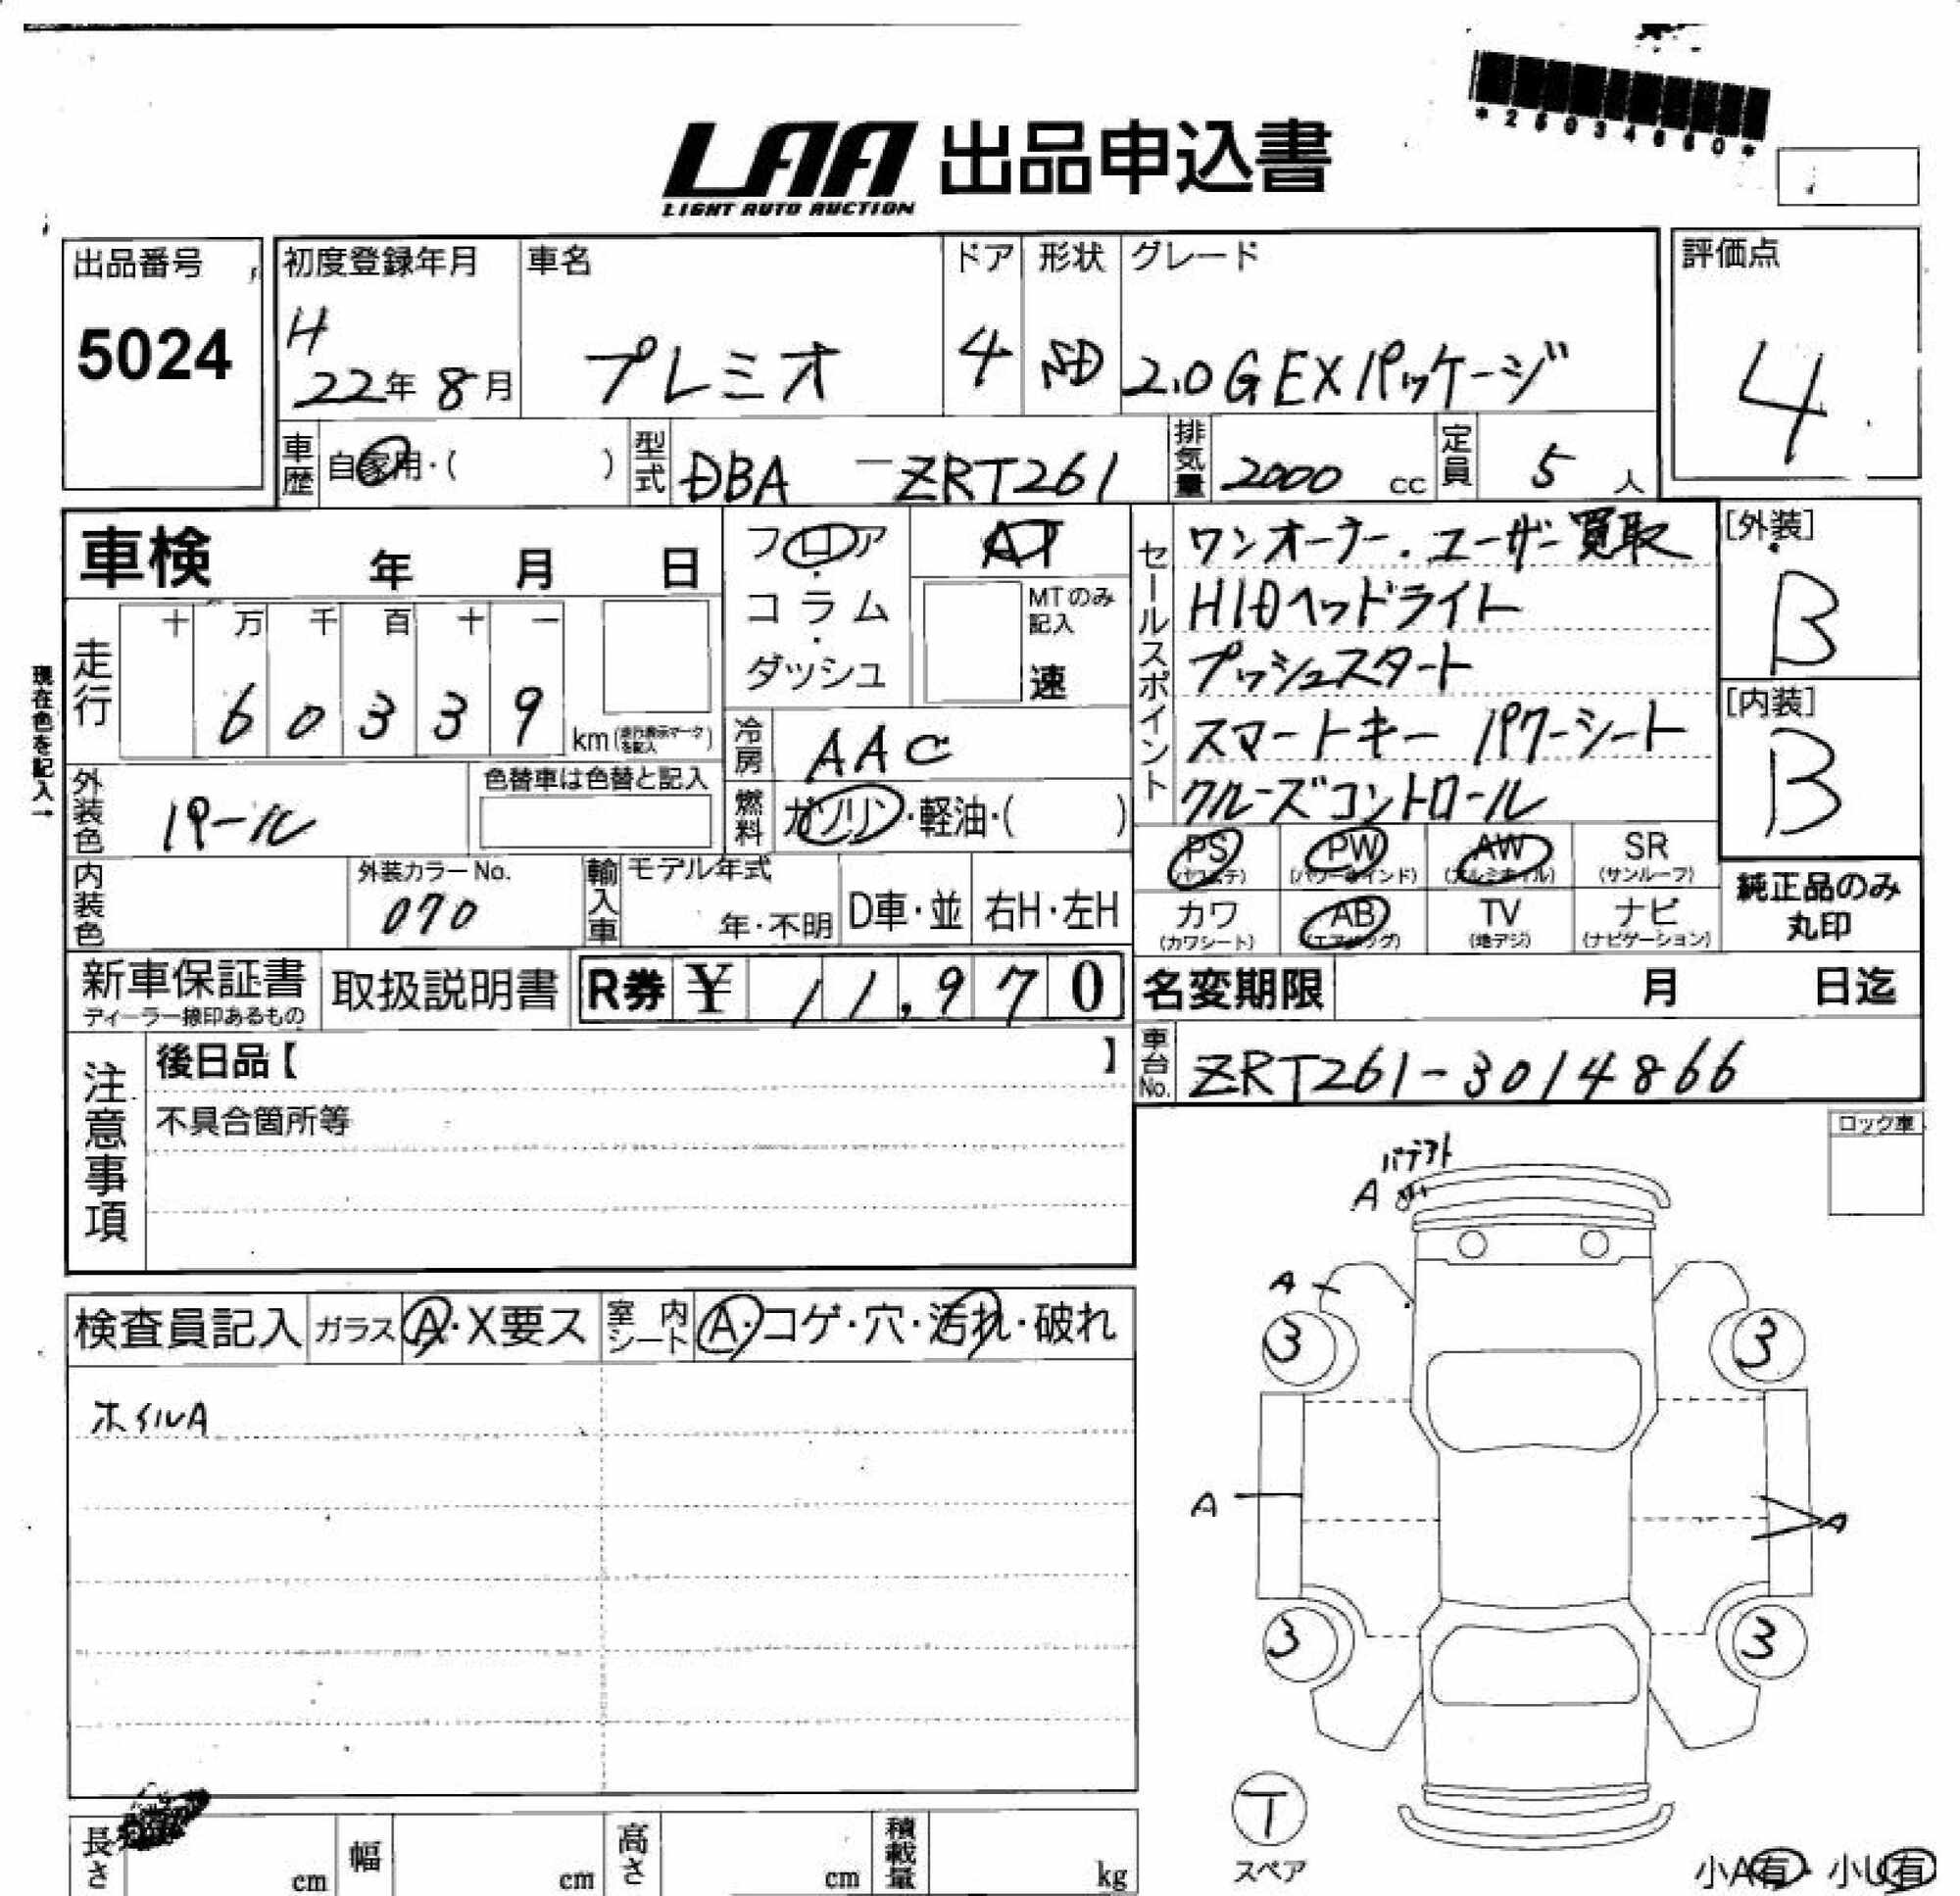 *25034660*
LAA 出品申込書
LIGHT AUTO AUCTION
出品番号
5024
初度登録年月
H
22年 8月
車名
プレミオ
ドア
4
形状
SD
グレード
2.0G EXパッケージ
評価点
4
車歴
自家用・( )
型式
DBA -ZRT261
排気量
2000 cc
定員
5 人
車検 年 月 日
フロア
・
コラム
・
ダッシュ
AT
MTのみ
記入
速
セールスポイント
ワンオーナー.ユーザー買取
HIDヘッドライト
プッシュスタート
スマートキー パワーシート
クルーズコントロール
[外装]
B
[内装]
B
現在色を記入→
走行
十 万 千 百 十 一
6 0 3 3 9
km(走行表示マークを記入)
冷房
AAC
外装色
パール
色替車は色替と記入
燃料
ガソリン・軽油・( )
PS
(パワステ)
PW
(パワーウインド)
AW
(アルミホイル)
SR
(サンルーフ)
カワ
(カワシート)
AB
(エアバッグ)
TV
(地デジ)
ナビ
(ナビゲーション)
純正品のみ
丸印
内装色
外装カラーNo.
070
輸入車
モデル年式
年・不明
D車・並
右H・左H
新車保証書
ディーラー捺印あるもの
取扱説明書
R券 ¥ 11,970
名変期限 月 日迄
注意事項
後日品【 】
不具合箇所等
車台No.
ZRT261-3014866
ロック車
A
A
3
3
A
A
3
3
検査員記入
ガラス
A・X要ス
室内シート
A・コゲ・穴・汚れ・破れ
ホイルA
T
スペア
小A有・小U有
長さ
cm
幅
cm
高さ
cm
積載量
kg